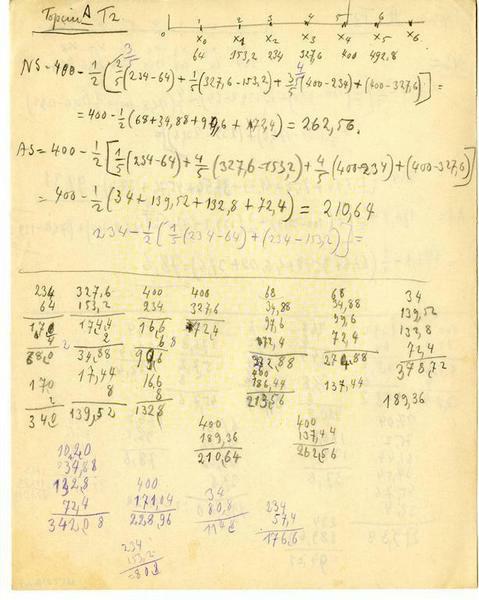 Topcim A T2
0 1 2 3 4 5 6
x₀ x₁ x₂ x₃ x₄ x₅ x₆
64 153,2 234 327,6 400 492,8
NS = 400 - 1/2 [ 2/5 (234-64) + 1/5 (327,6-153,2) + 3/5 (400-234) + (400-327,6) ] =
= 400 - 1/2 (68 + 34,88 + 99,6 + 72,4) = 262,56.
AS = 400 - 1/2 [ 1/5 (234-64) + 4/5 (327,6-153,2) + 4/5 (400-234) + (400-327,6) ]
= 400 - 1/2 (34 + 139,52 + 132,8 + 72,4) = 210,64
234 - 1/2 [ 1/5 (234-64) + (234-153,2) ] =
234 327,6 400 400 68 68 34
64 153,2 234 327,6 34,88 34,88 139,52
170 174,4 16,6 72,4 97,6 99,6 132,8
4 2 6 72,4 72,4 72,4
68,0 34,88 99,6 274,88 378,72
170 17,44 16,6 400 137,44
2 8 8 186,44 189,36
340 139,52 132,8 213,56
400 400
189,36 137,44
210,64 262,56
102,0
34,88
132,8 400 34
72,4 171,04 80,8 234
342,08 228,96 114,8 57,4
176,6
234
153,2
80,8